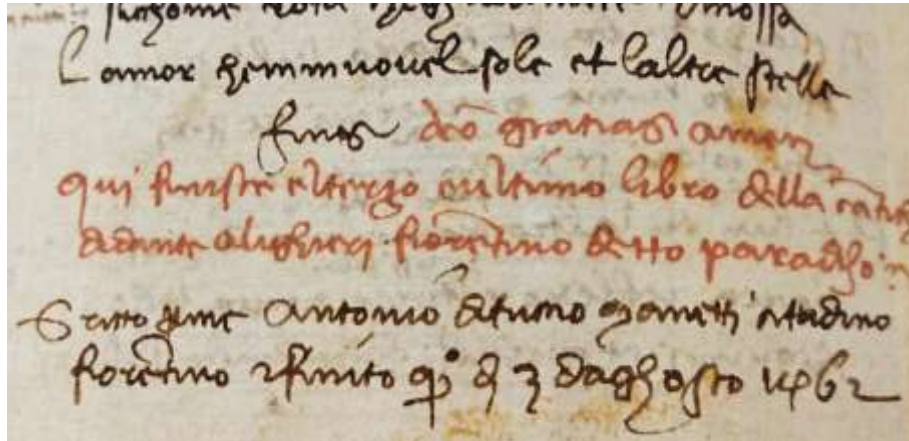 L amor chemmuovel sole et laltre stelle
finis deo gratias amen
qui finiscie elterzo eultimo libro della
didante alighieri fiorentino detto paradiso
Scritto per me Antonio dituccio manetti cittadino
fiorentino efinito di 3 daghosto 1462